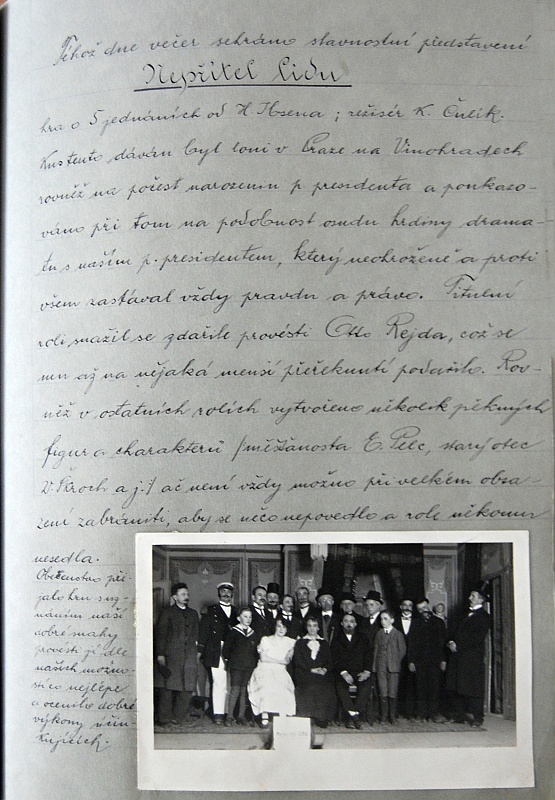 Téhož dne večer sehráno slavnostní představení
Nepřítel lidu
hra o 5 jednáních od H. Ibsena ; režisér K. Čulík.
Kus tento dáván byl loni v Praze na Vinohradech
rovněž na počest narozenin p. presidenta a poukazo-
váno při tom na podobnost osudu hrdiny drama-
tu s naším p. presidentem, který neohroženě a proti
všem zastával vždy pravdu a právo. Titulní
roli snažil se zdařile provésti Otto Rejda, což se
mu až na nějaká menší přeřeknutí podařilo. Rov-
něž v ostatních rolích vytvořeno několik pěkných
figur a charakterů /měšťanosta E. Pelc, starý otec
V. Kroch a j:/ ač není vždy možno při velkém obsa-
zení zabrániti, aby se něco nepovedlo a role někomu
nesedla.
Obecenstvo při-
jalo hru s uz-
náním naší
dobré snahy
provésti ji dle
našich možno-
stí co nejlépe
a ocenilo dobré
výkony účin-
kujících.